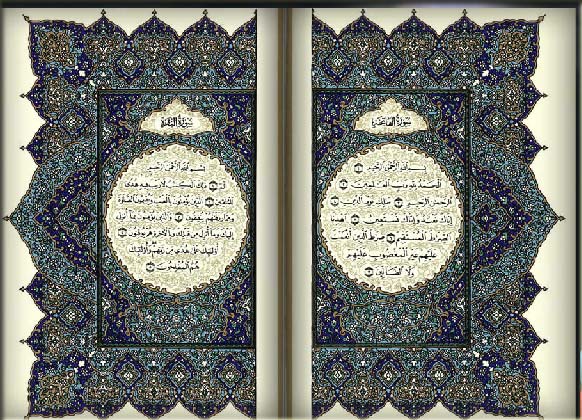 سورة الفاتحة
بسم الله الرحمن الرحيم
الحمد لله رب العالمين
الرحمن الرحيم ملك يوم الدين
إياك نعبد وإياك نستعين اهدنا
الصراط المستقيم صراط الذين أنعمت
عليهم غير المغضوب عليهم
ولا الضالين
سورة البقرة
بسم الله الرحمن الرحيم
الم ذلك الكتاب لا ريب فيه هدى
للمتقين الذين يؤمنون بالغيب ويقيمون الصلاة
ومما رزقناهم ينفقون والذين يؤمنون بما أنزل
إليك وما أنزل من قبلك وبالآخرة هم يوقنون
أولئك على هدى من ربهم وأولئك
هم المفلحون